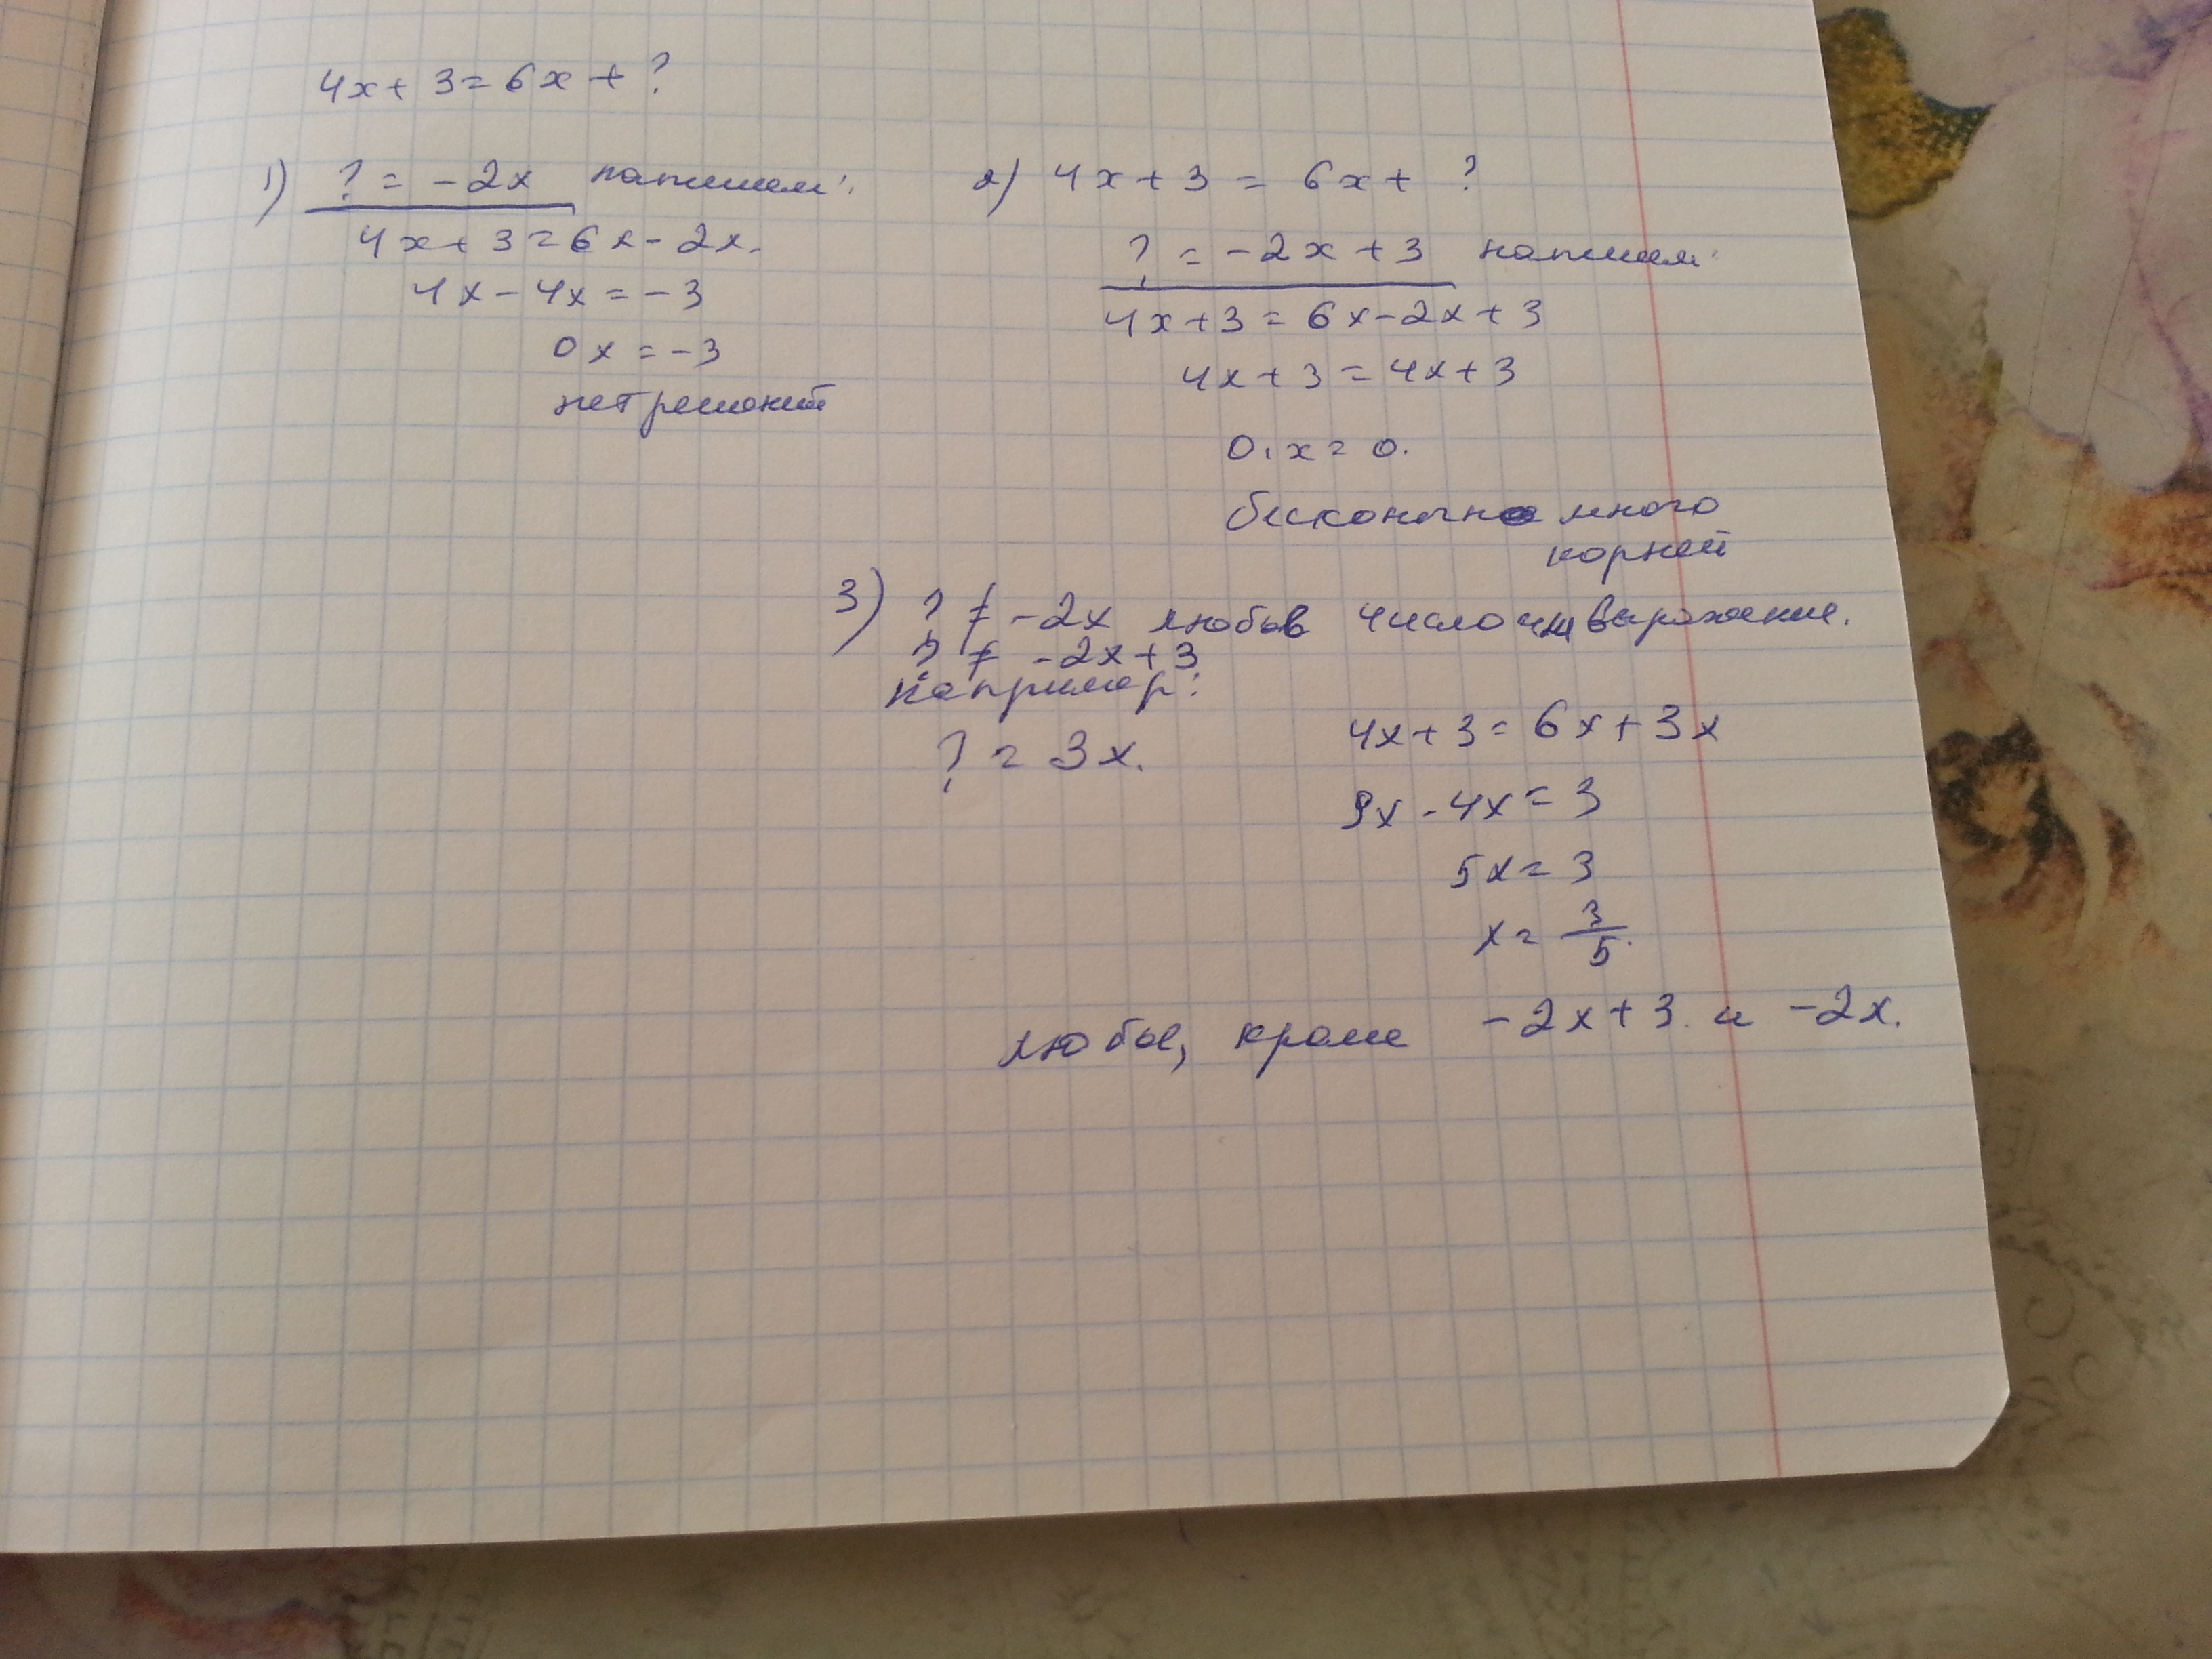 4x + 3 = 6x + ?
1) ? = -2x напишем:
4x + 3 = 6x - 2x.
4x - 4x = -3
0x = -3
нет решений
2) 4x + 3 = 6x + ?
? = -2x + 3 напишем:
4x + 3 = 6x - 2x + 3
4x + 3 = 4x + 3
0 · x = 0.
бесконечно много
корней
3) ? ≠ -2x любое число или выражение.
? ≠ -2x + 3
например:
? = 3x.
4x + 3 = 6x + 3x
9x - 4x = 3
5x = 3
x = 3/5.
любые, кроме -2x + 3 и -2x.